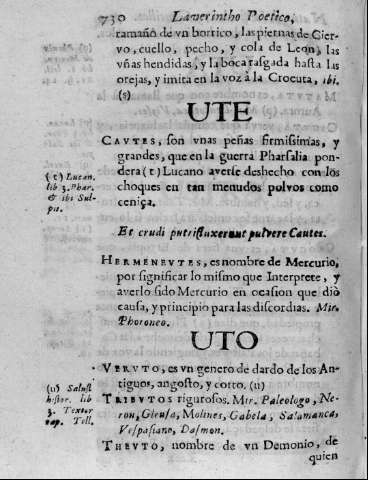 730 Laverintho Poetico,
tamaño de vn borrico, las piernas de Cier-
vo, cuello, pecho, y cola de Leon, las
vñas hendidas, y la boca rasgada hasta las
orejas, y imita en la voz à la Crocuta, ibi.
(s)
UTE
CAVTES, son vnas peñas firmissimas, y
grandes, que en la guerra Pharsalia pon-
dera (t) Lucano averse deshecho con los
choques en tan menudos polvos como
ceniça.
(t) Lucan.
lib 3. Phar.
& ibi Sul-
pit.
Et crudi putri fluxeraut pulvere Cautes.
HERMENEVTES, es nombre de Mercurio,
por significar lo mismo que Interprete, y
averlo sido Mercurio en ocasion que diò
causa, y principio para las discordias. Mir.
Phoroneo.
UTO
VERVTO, es vn genero de dardo de los An-
tiguos, angosto, y corto. (u)
(u) Salust
histor. lib
3. Textor
cap. Tell.
TRIBVTOS rigurosos. Mir. Paleologo, Ne-
ron, Giensa, Molines, Gabela, Salamanca,
Vespasiano, Dasmon.
THEVTO, nombre de vn Demonio, de
quien